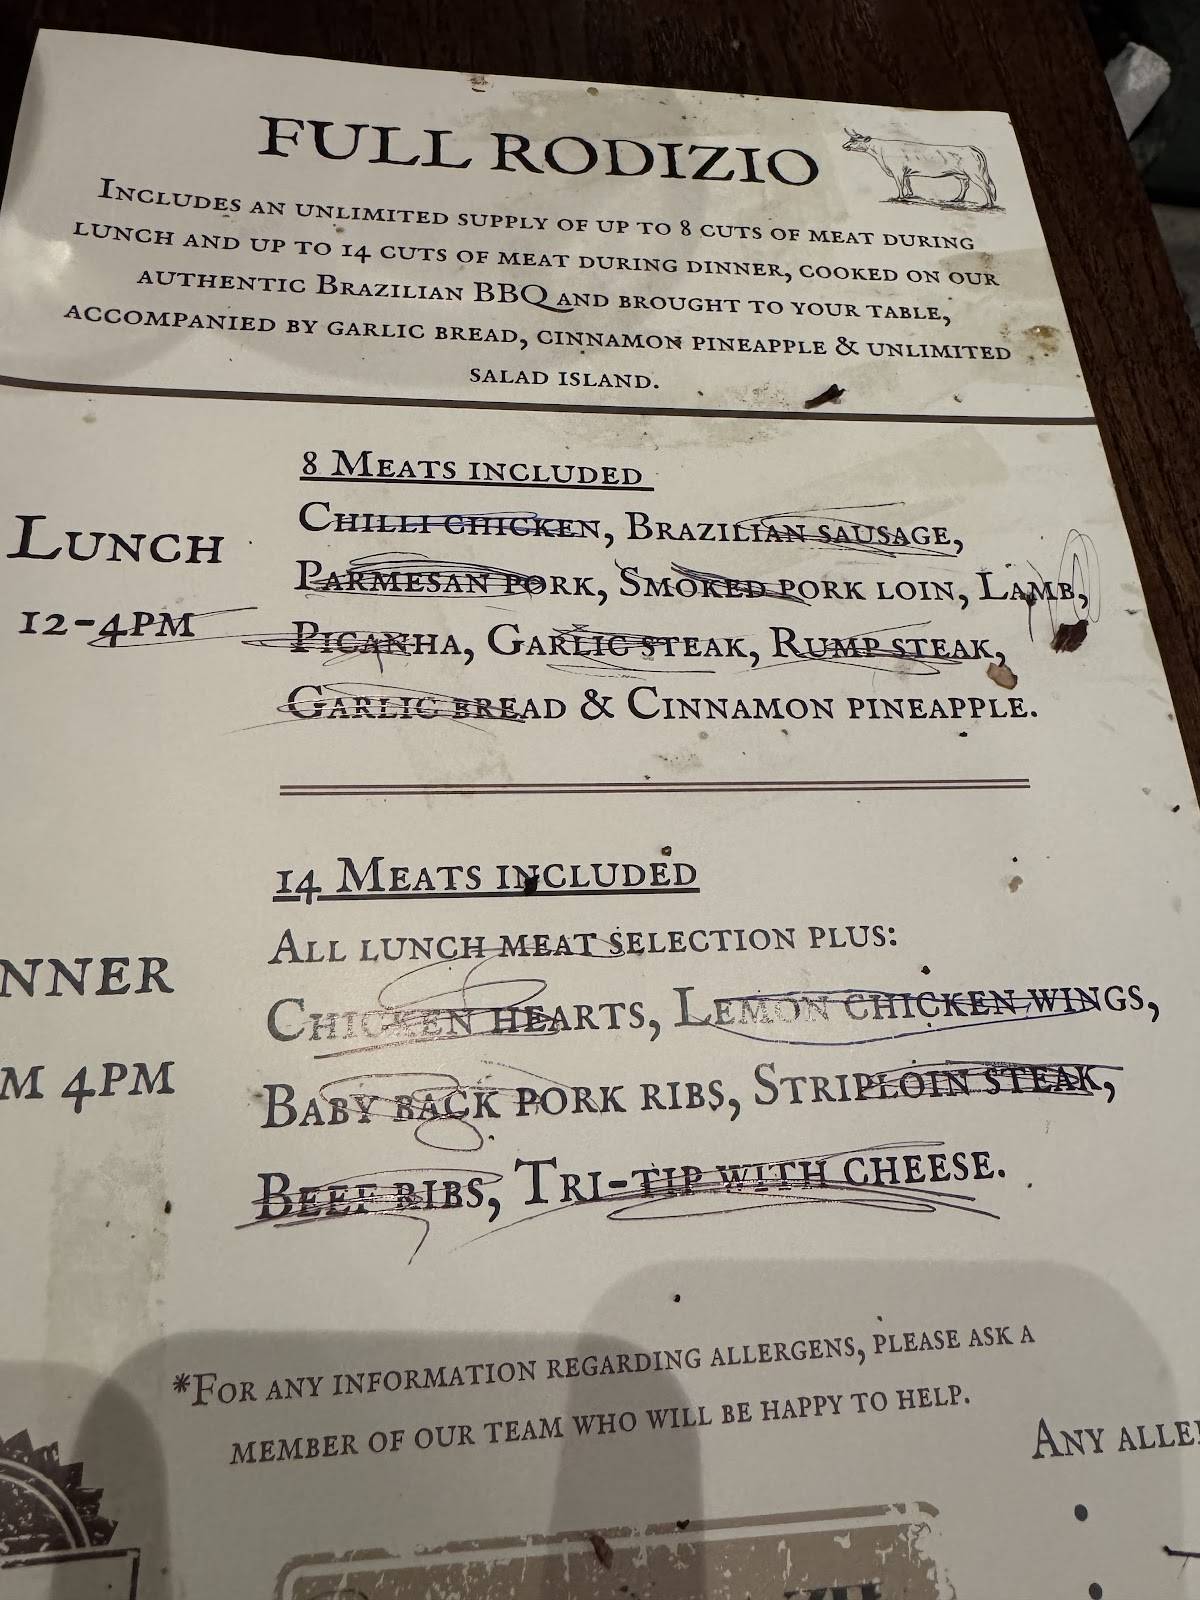 FULL RODIZIO
INCLUDES AN UNLIMITED SUPPLY OF UP TO 8 CUTS OF MEAT DURING
LUNCH AND UP TO 14 CUTS OF MEAT DURING DINNER, COOKED ON OUR
AUTHENTIC BRAZILIAN BBQ AND BROUGHT TO YOUR TABLE,
ACCOMPANIED BY GARLIC BREAD, CINNAMON PINEAPPLE & UNLIMITED
SALAD ISLAND.
LUNCH
12-4PM
8 MEATS INCLUDED
CHILLI CHICKEN, BRAZILIAN SAUSAGE,
PARMESAN PORK, SMOKED PORK LOIN, LAMB,
PICANHA, GARLIC STEAK, RUMP STEAK,
GARLIC BREAD & CINNAMON PINEAPPLE.
NNER
M 4PM
14 MEATS INCLUDED
ALL LUNCH MEAT SELECTION PLUS:
CHICKEN HEARTS, LEMON CHICKEN WINGS,
BABY BACK PORK RIBS, STRIPLOIN STEAK,
BEEF RIBS, TRI-TIP WITH CHEESE.
*FOR ANY INFORMATION REGARDING ALLERGENS, PLEASE ASK A
MEMBER OF OUR TEAM WHO WILL BE HAPPY TO HELP.
ANY ALLE